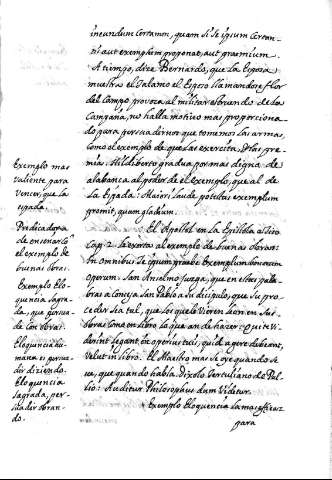 ineundum Certamen, quam si se ipsum Certanti aut exemplum proponat, aut praemium.
A tiempo, dize Bernardo, que la Esposa
muestra el Talamo el Esposo llamandose flor
del Campo provoca al militar estruendo de la
Campaña, no halla motivo mas proporcionado
para persuadirnos que tomemos las armas,
como el exemplo de que las exercita,
Hildiberto gradua por mas digna de
alabança al poder de el Exemplo, que al de
la Espada: Maiori laude potitus exemplum
promit, quam gladium.
El Apostol en la Epistola a Tito
Cap. 2. le exorta al exemplo de buenas obras:
In omnibus te ipsum praebe Exemplum bonorum
operum. San Anselmo juzga, que en estas palabras
aconseja San Pablo a su discipulo, que su proceder
sea tal, que los que le vieren lean en sus
obras como en libro lo que an de hazer: Qui te viderint
legant in operibus tuis, quid agere debeant,
velut in libro. El Maestro mas se oye quando se
ve, que quando habla. Dixolo Tertuliano de Tullio:
Auditur Philosophus dum videtur.
Exemplo Eloquencia la mas eficaz
para
Exemplo mas
valiente para
vencer, que la
espada.
Predicadores
de ensenar con
el exemplo de
buenas obras.
Exemplo Eloquencia
sagrada,
que persuade
con obras.
Eloquencia humana
es persuadir
diziendo.
Eloquencia
sagrada, persuadir
obrando.